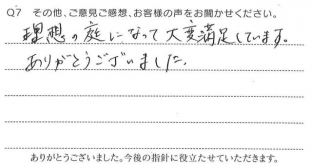 Q7 その他、ご意見ご感想、お客様の声をお聞かせください。
理想の庭になって大変満足しています。
ありがとうございました。
ありがとうございました。今後の指針に役立たせていただきます。